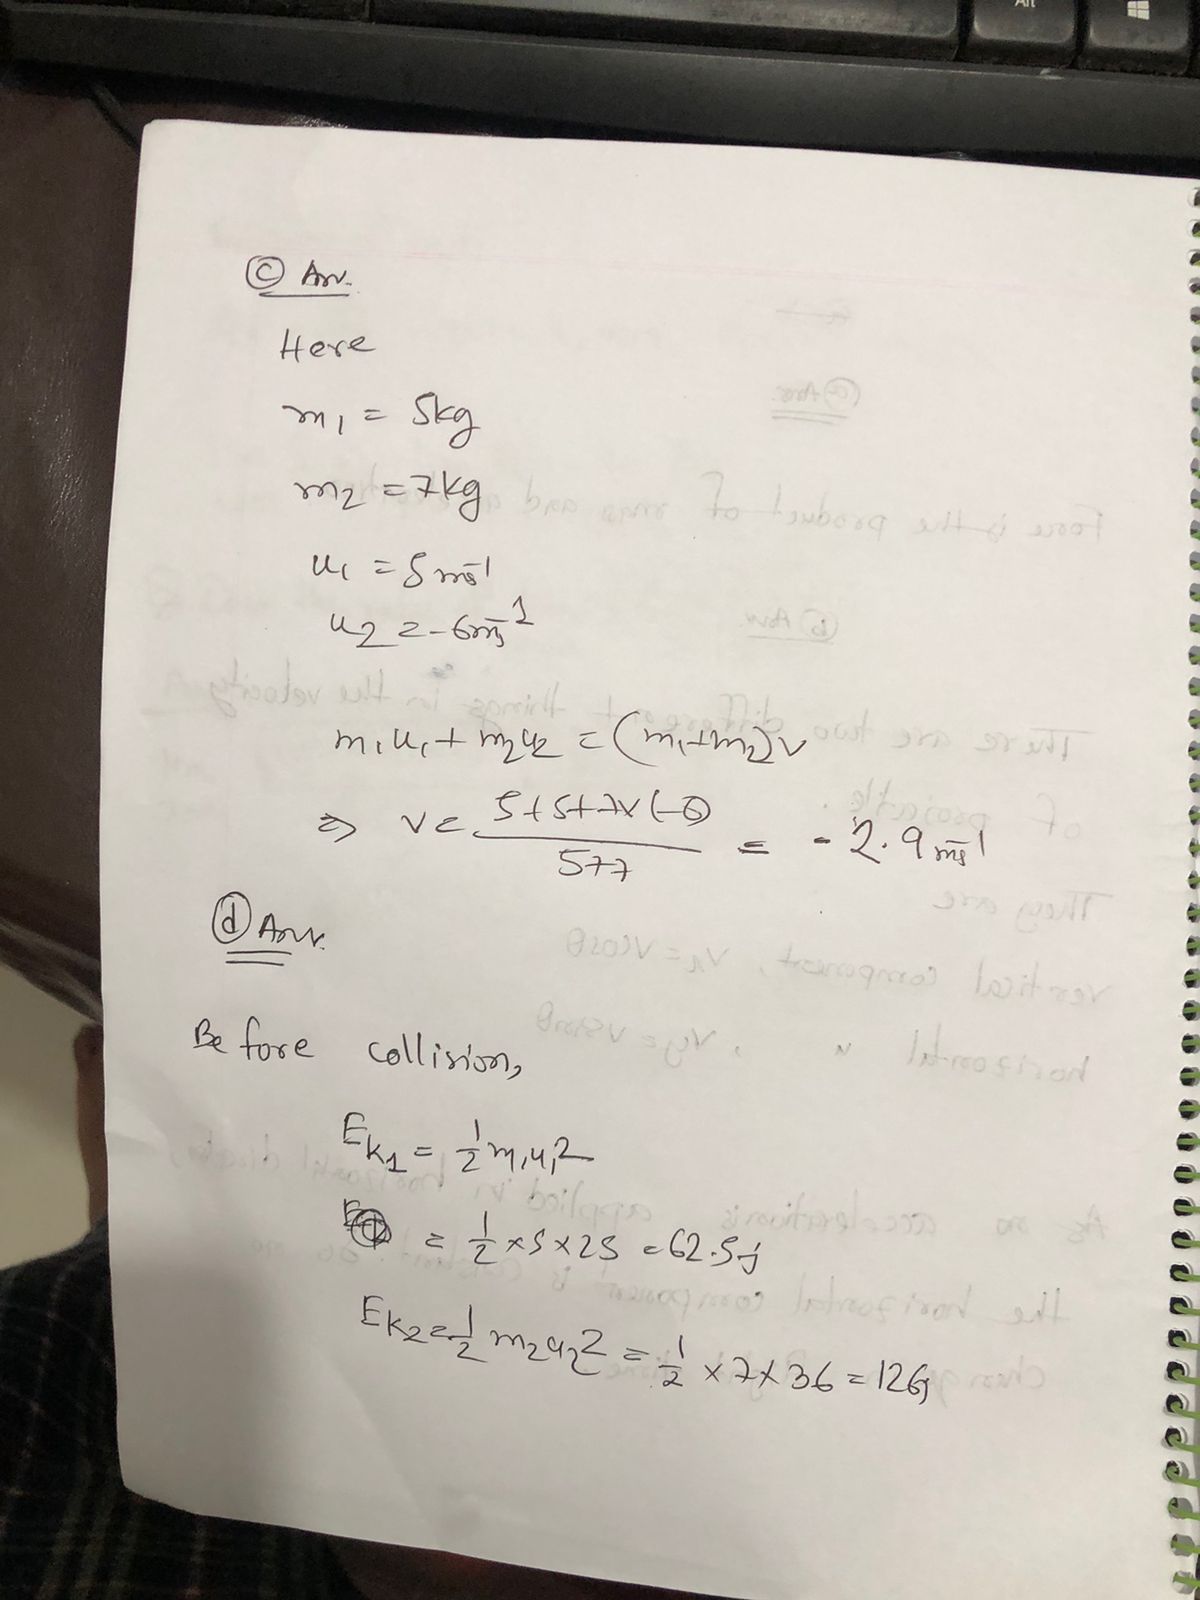 Alt
ⓒ Anr.
Here
m₁ = 5kg
m₂ = 7kg
u₁ = 5ms⁻¹
u₂ = -6ms⁻¹
m₁u₁ + m₂u₂ = (m₁+m₂)v
⇒ v = (5+5+7×(-6))/(5+7) = -2.9ms⁻¹
ⓓ Anr.
Before collision,
Eₖ₁ = ½m₁u₁²
= ½ × 5 × 25 = 62.5j
Eₖ₂ = ½ m₂u₂² = ½ × 7 × 36 = 126j